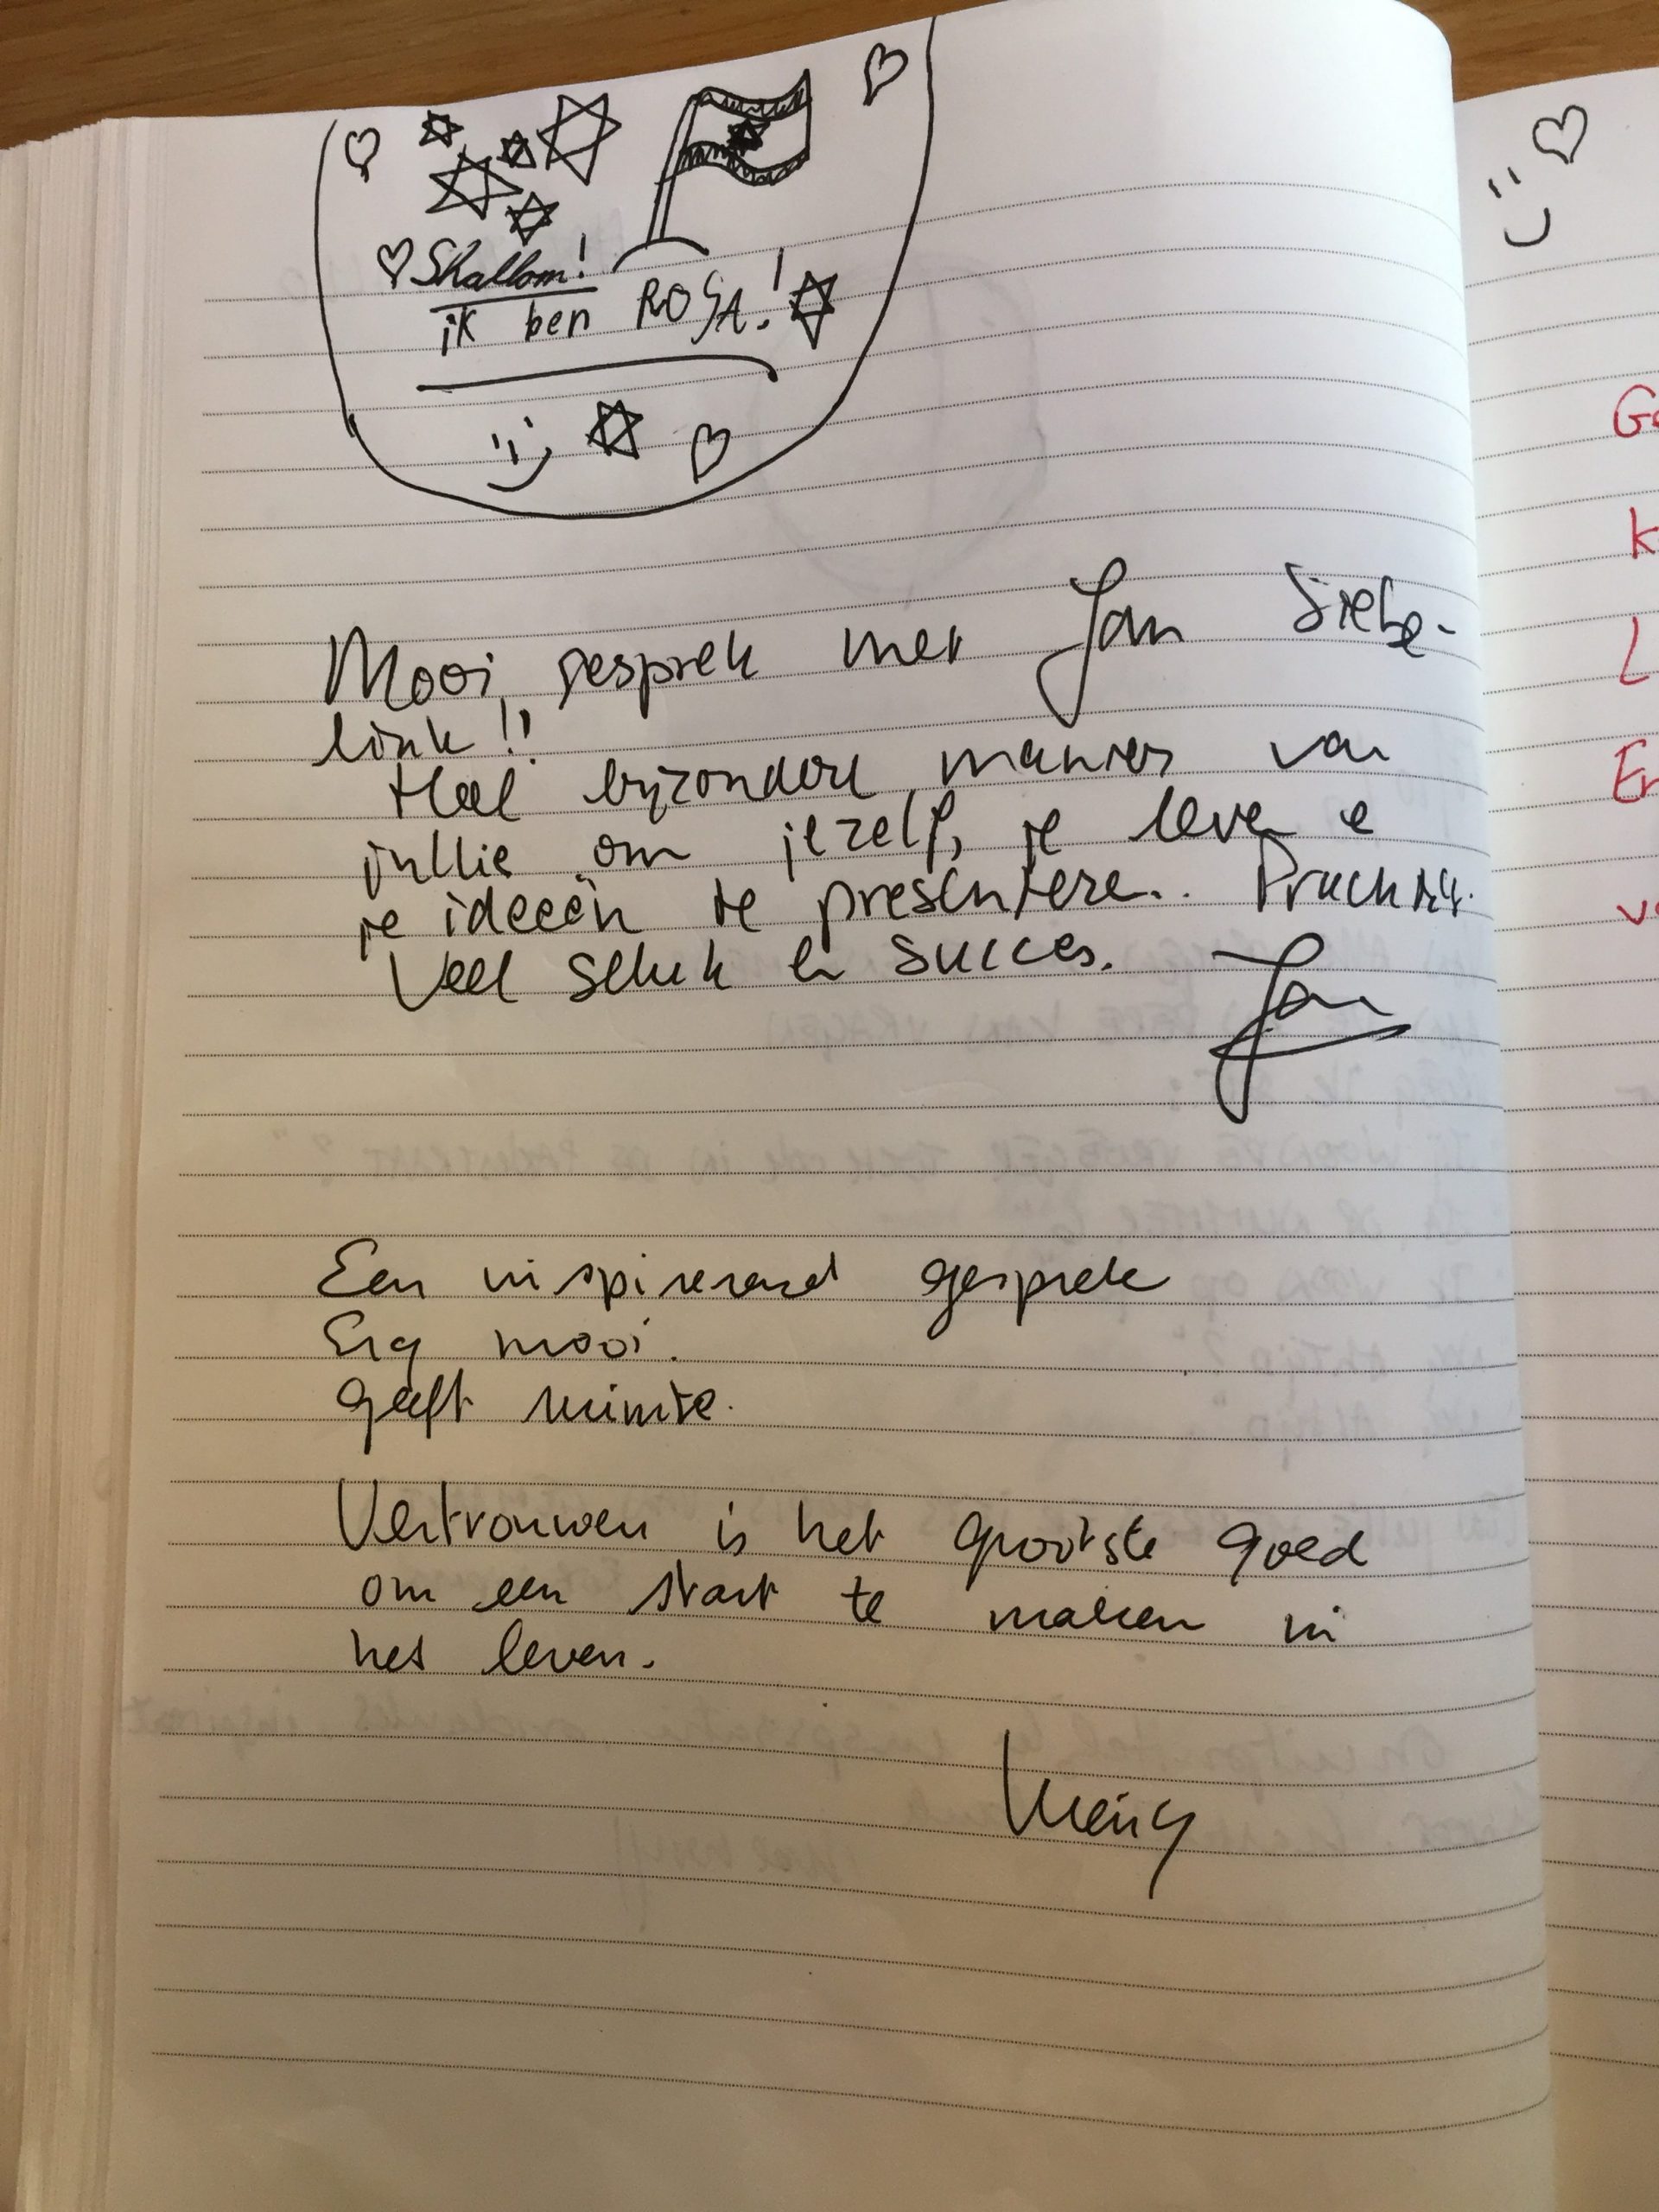 Shallom!
ik ben ROSA!
Mooi gesprek met Jan Siebe-
link!!
Heel bijzondere manier van
jullie om jezelf, je leven e
je ideeën te presentere.. Prachtig.
Veel geluk en succes.
Jan
Een inspirerend gesprek
Erg mooi.
geeft ruimte.
Vertrouwen is het grootste goed
om een start te maken in
het leven.
Ge
k
L
En
vo